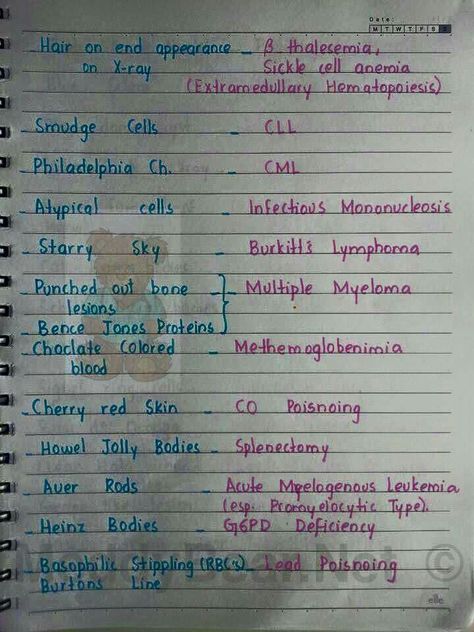 Date:
M T W T F S S
Hair on end appearance - β thalecemia,
on X-ray Sickle cell anemia
(Extramedullary Hematopoiesis)
Smudge Cells - CLL
Philadelphia Ch. - CML
Atypical cells - Infectious Mononucleosis
Starry Sky - Burkitt's Lymphoma
Punched out bone - Multiple Myeloma
lesions
Bence Jones Proteins
Choclate Colored - Methemoglobenimia
blood
Cherry red Skin - CO Poisnoing
Howel Jolly Bodies - Splenectomy
Auer Rods - Acute Myelogenous Leukemia
(esp. Promyelocytic Type).
Heinz Bodies - G6PD Deficiency
Basophilic Stippling (RBC's) - Lead Poisnoing
Burtons Line
elle